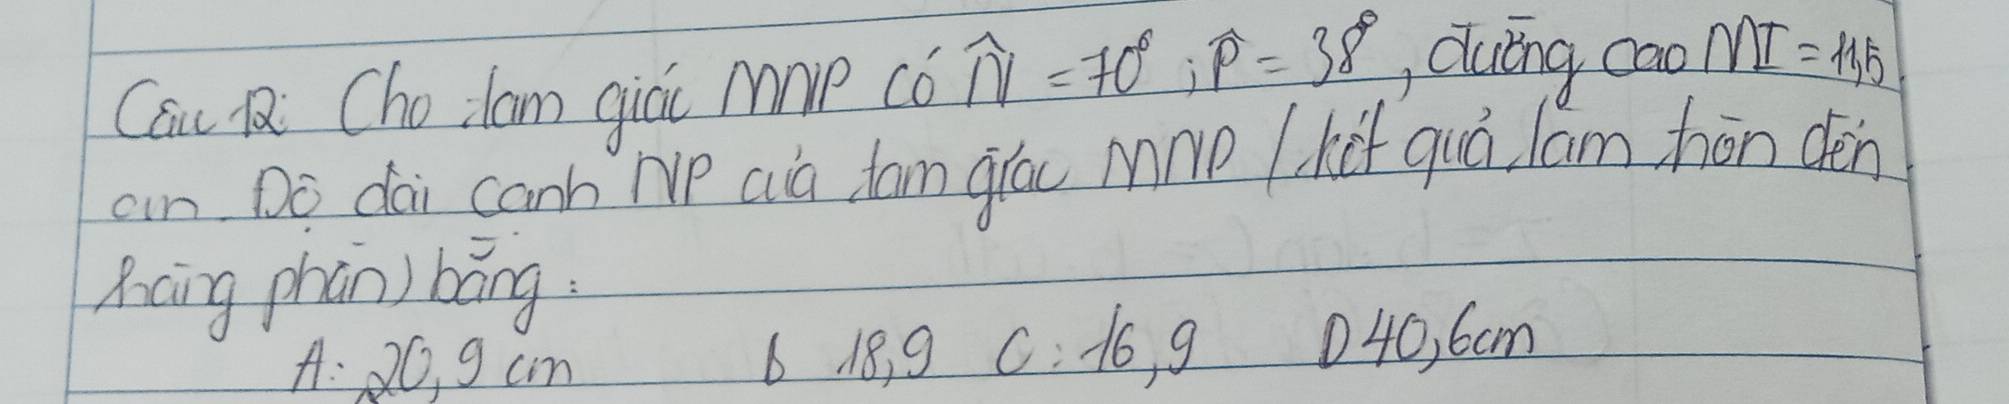 Câu 12: Cho tam giác MNP có N̂ = 70°; P̂ = 38°, đường cao MI = 11,5
cm. Độ dài cạnh NP của tam giác MNP (kết quả làm tròn đến
hàng phần) bằng:
A: 20,9 cm b 18,9 C: 16,9 D 40,6cm